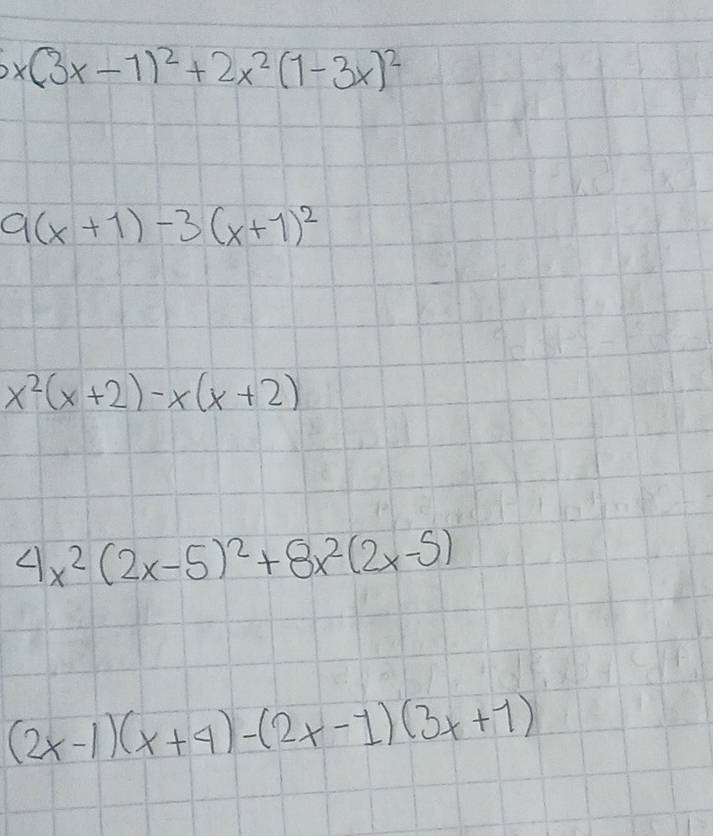 x(3x-1)²+2x²(1-3x)²
9(x+1)-3(x+1)²
x²(x+2)-x(x+2)
4x²(2x-5)²+8x²(2x-5)
(2x-1)(x+4)-(2x-1)(3x+1)